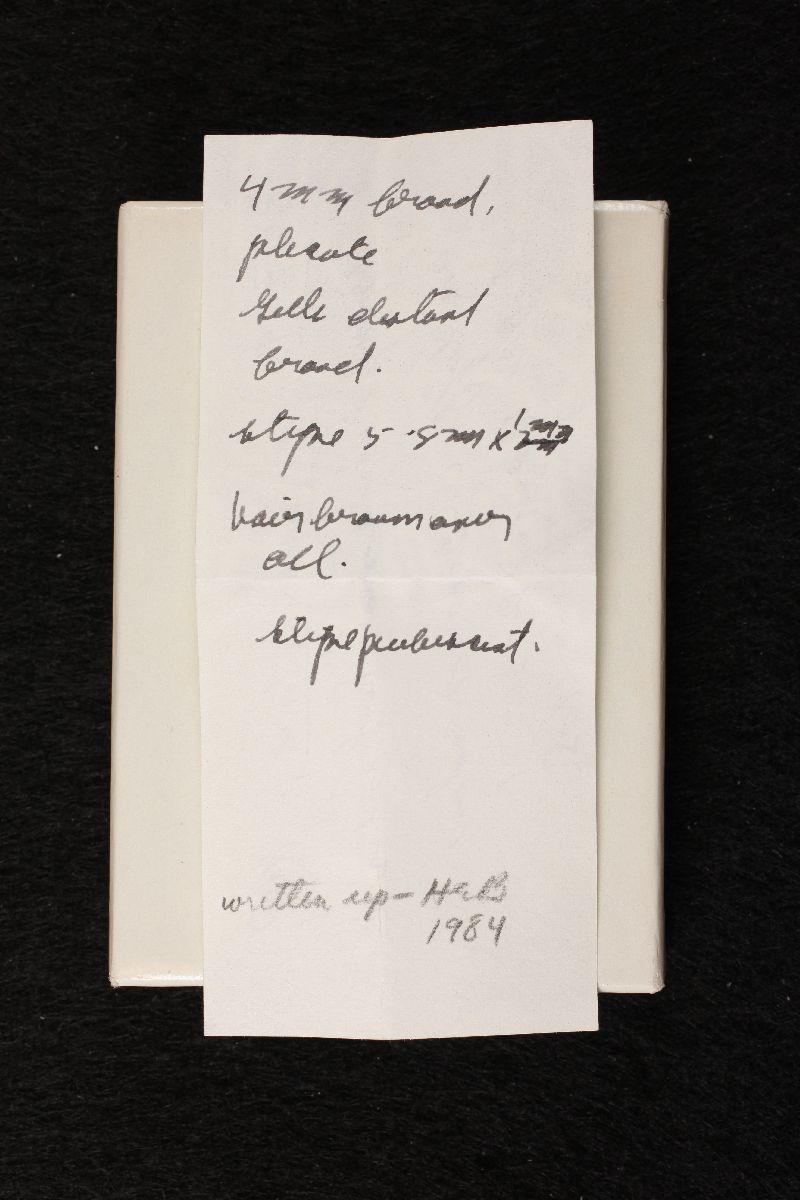 4 mm broad,
plicate
Gills distant
broad.
stipe 5 -8 mm x
hairs brown over
all.
stipe pubescent.
written up - H&B
1984